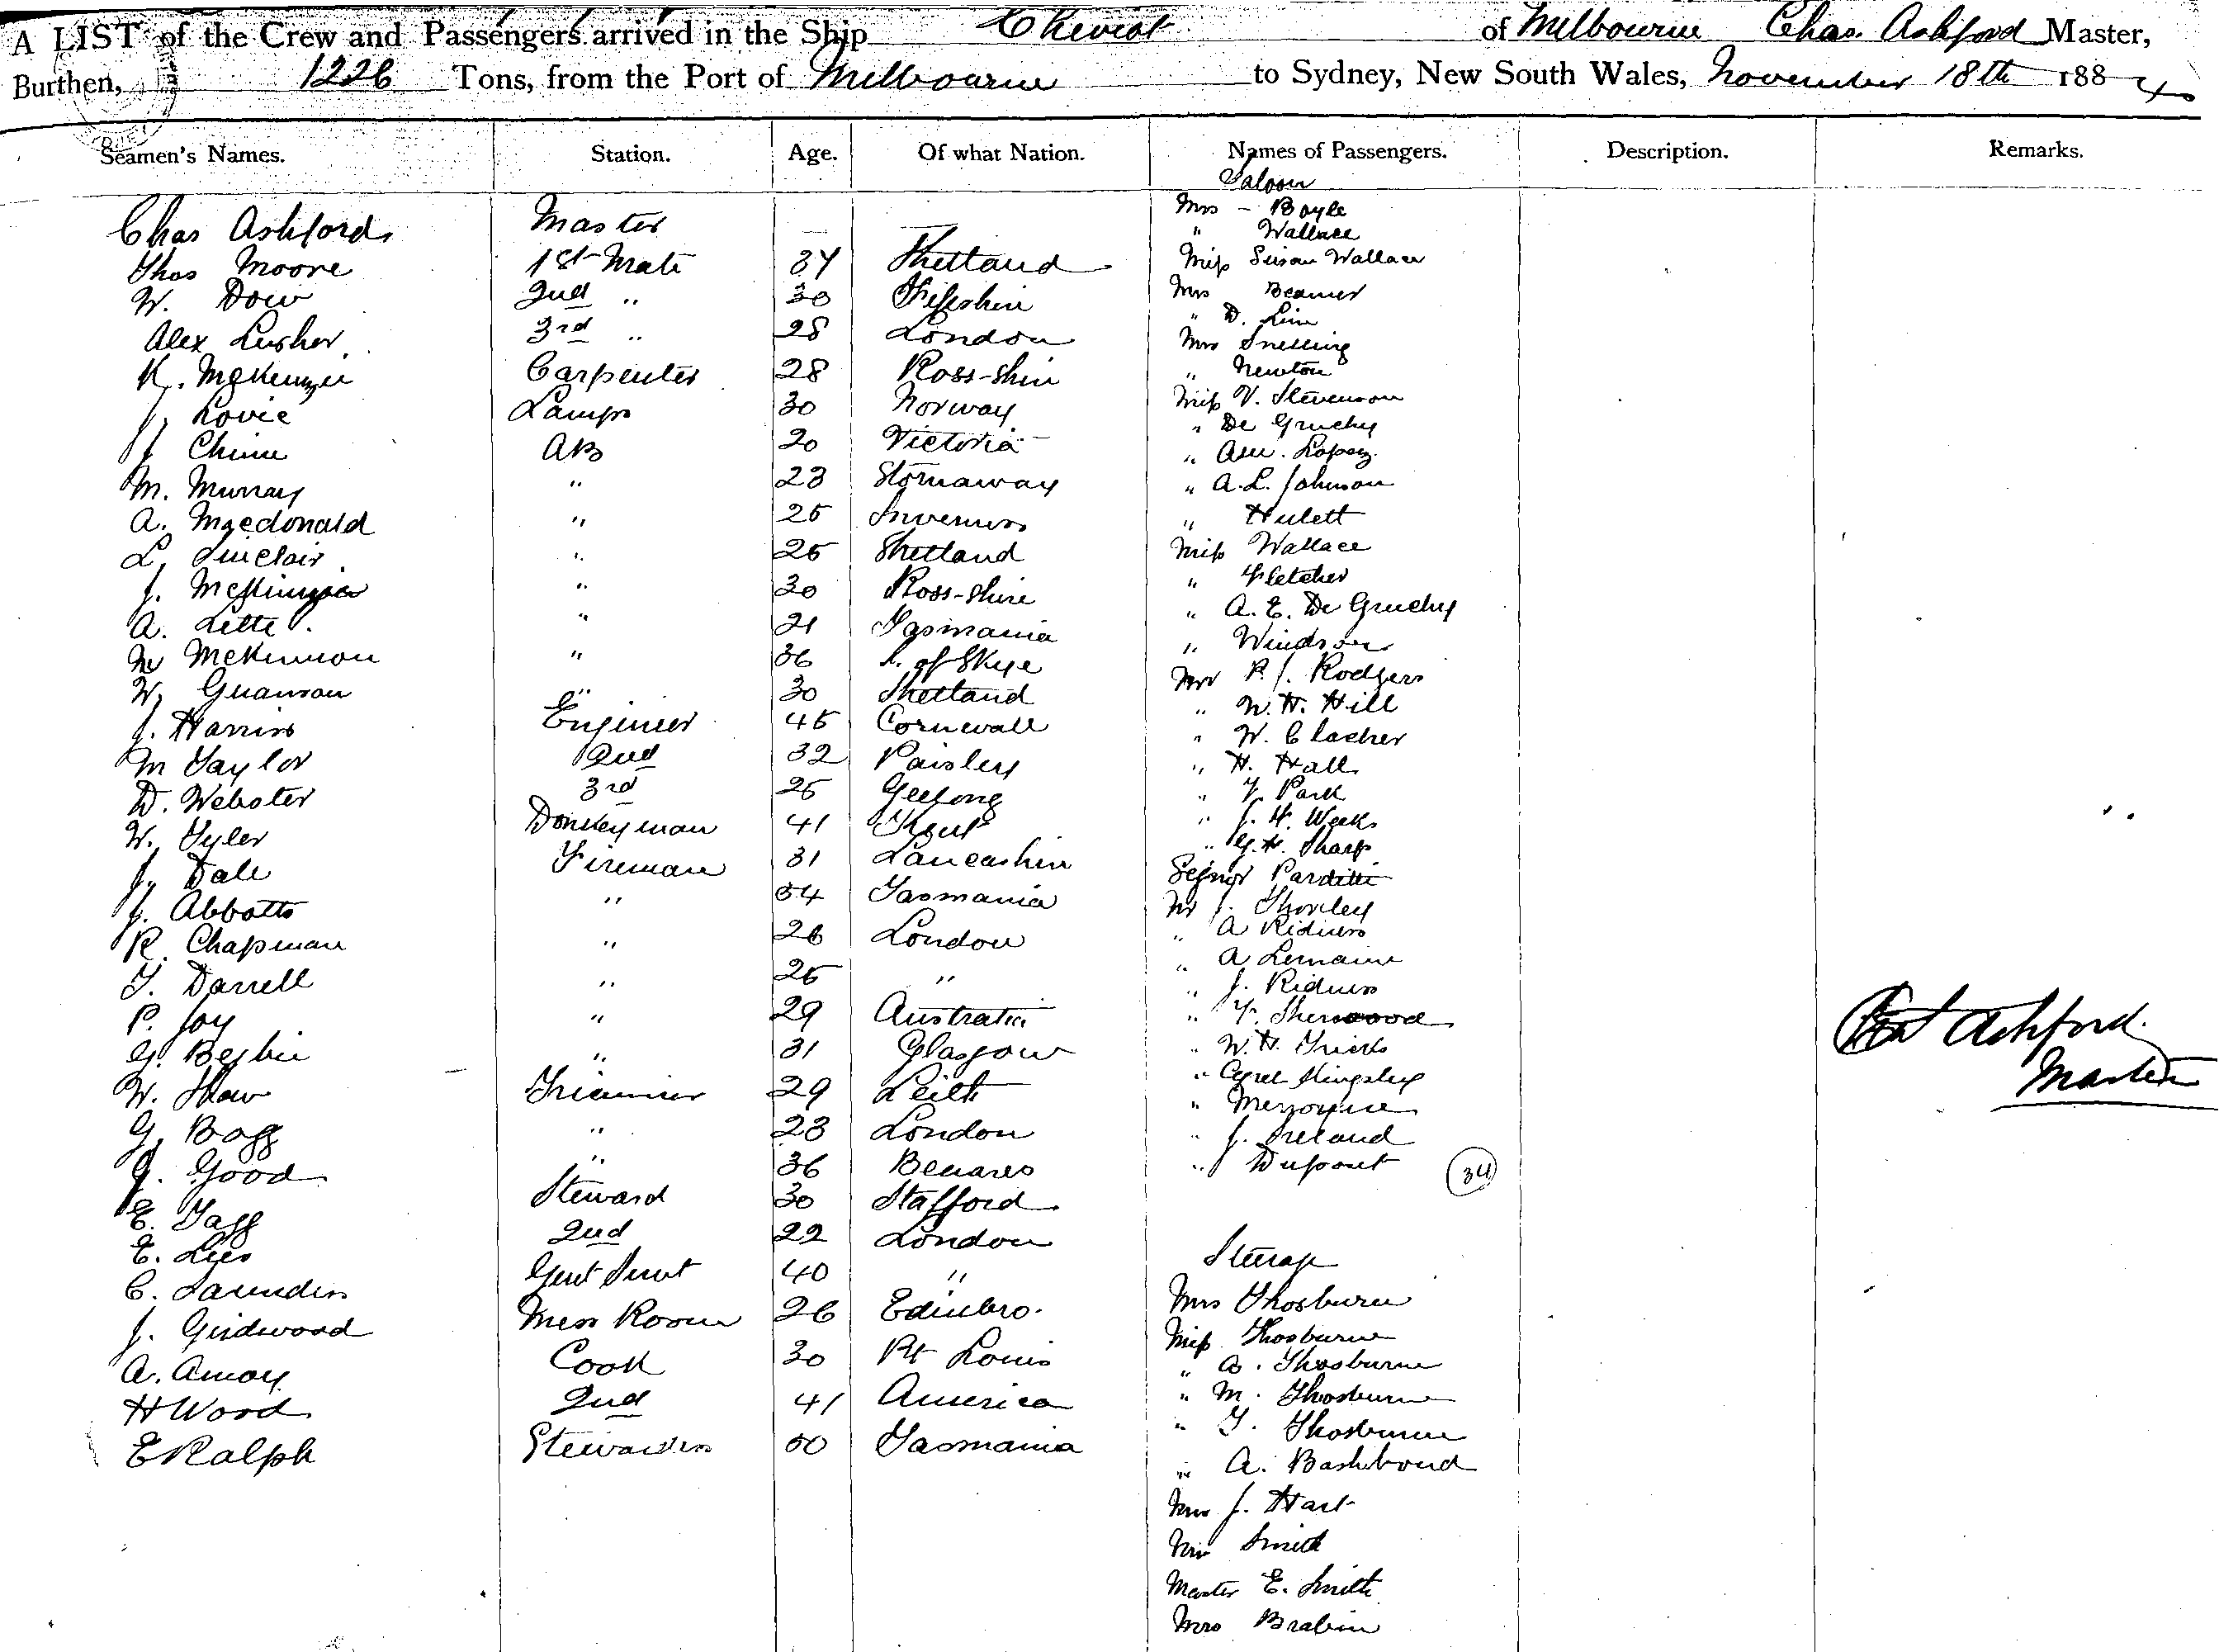 A LIST of the Crew and Passengers arrived in the Ship Cheviot of Melbourne Chas. Ashford Master,
Burthen, 1226 Tons, from the Port of Melbourne to Sydney, New South Wales, November 18th 1884
Seamen's Names. Station. Age. Of what Nation. Names of Passengers. Description. Remarks.
Saloon
Chas Ashford Master — — Mrs - Boyle
" Wallace
Thos Moore 1st Mate 34 Shetland Miss Susan Wallace
W. Dow 2nd " 30 Fifeshire Mrs Beamer
" D.
Alex Lusher 3rd " 28 London Mrs Snelling
K. McKenzie Carpenter 28 Ross-shire " Newton
J. Lovie Lamps 30 Norway Miss V. Stevenson
" De Gruchy
J Chinn AB 20 Victoria " Lopez
M. Murray " 23 Stornaway " A.L. Johnson
A. Macdonald " 25 Inverness " Hulett
L. Sinclair " 25 Shetland Miss Wallace
J. McKenzie " 30 Ross-shire " Fletcher
A. Lette " 21 Tasmania " A. E. De Gruchy
McKinnon " 36 I. of Skye " Windsor
W. " 30 Shetland Mr P. J. Rodgers
" W. H. Hill
J. Harris Engineer 45 Cornwall " W. Clacher
M Taylor 2nd 32 Paisley " H. Hall
D. Webster 3rd 25 Geelong " Park
W. Tyler Donkeyman 41 Kent " J. H. Weeks
" G. H. Sharp
J. Dale Fireman 31 Lancashire Segnor Parditti
J. Abbotts " 54 Tasmania Mr J. Thorley
R. Chapman " 26 London " A
" A Lemaire
T. Darrell " 25 " " J.
P. Joy " 29 Australia " F. Sherwood
G. Begbie " 31 Glasgow " W. H. Tricks
W. Shaw Trimmer 29 Leith " Kingsley
"
G. Bagg " 23 London " J. Ireland
J. Good " 36 Benares " Dupont 34
E. Tagg Steward 30 Stafford
E. Lees 2nd 22 London Steerage
C. Saunders 40 "
J. Girdwood Mess Room 26 Edinbro. Mrs Thosburn
Miss Thosburn
A. Amoy Cook 30 Pt Louis " Thosburn
H Wood 2nd 41 America " M. Thosburn
E Ralph Stewardess 50 Tasmania " T. Thosburn
" A. Bashboud
Mrs J. Hart
Smith
Master E. Smith
Mrs Brabin
Chas Ashford
Master